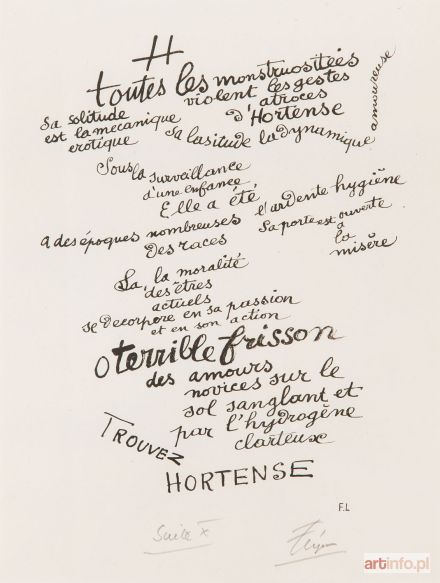 H
toutes les monstruositées
violent les gestes
atroces
d'Hortense
Sa solitude
est la mecanique
erotique
Sa lasitude la dynamique
amoureuse
Sous la surveillance
d'une enfance
Elle a été
a des époques nombreuses
l'ardente hygiène
des races
Sa porte est ouverte
à
la
misère
La, la moralité
des êtres
actuels
se decorpore en sa passion
et en son action
O terrible frisson
des amours
novices sur le
sol sanglant et
par l'hydrogène
clarteuse
TROUVEZ
HORTENSE
F.L
Suite X
artinfo.pl